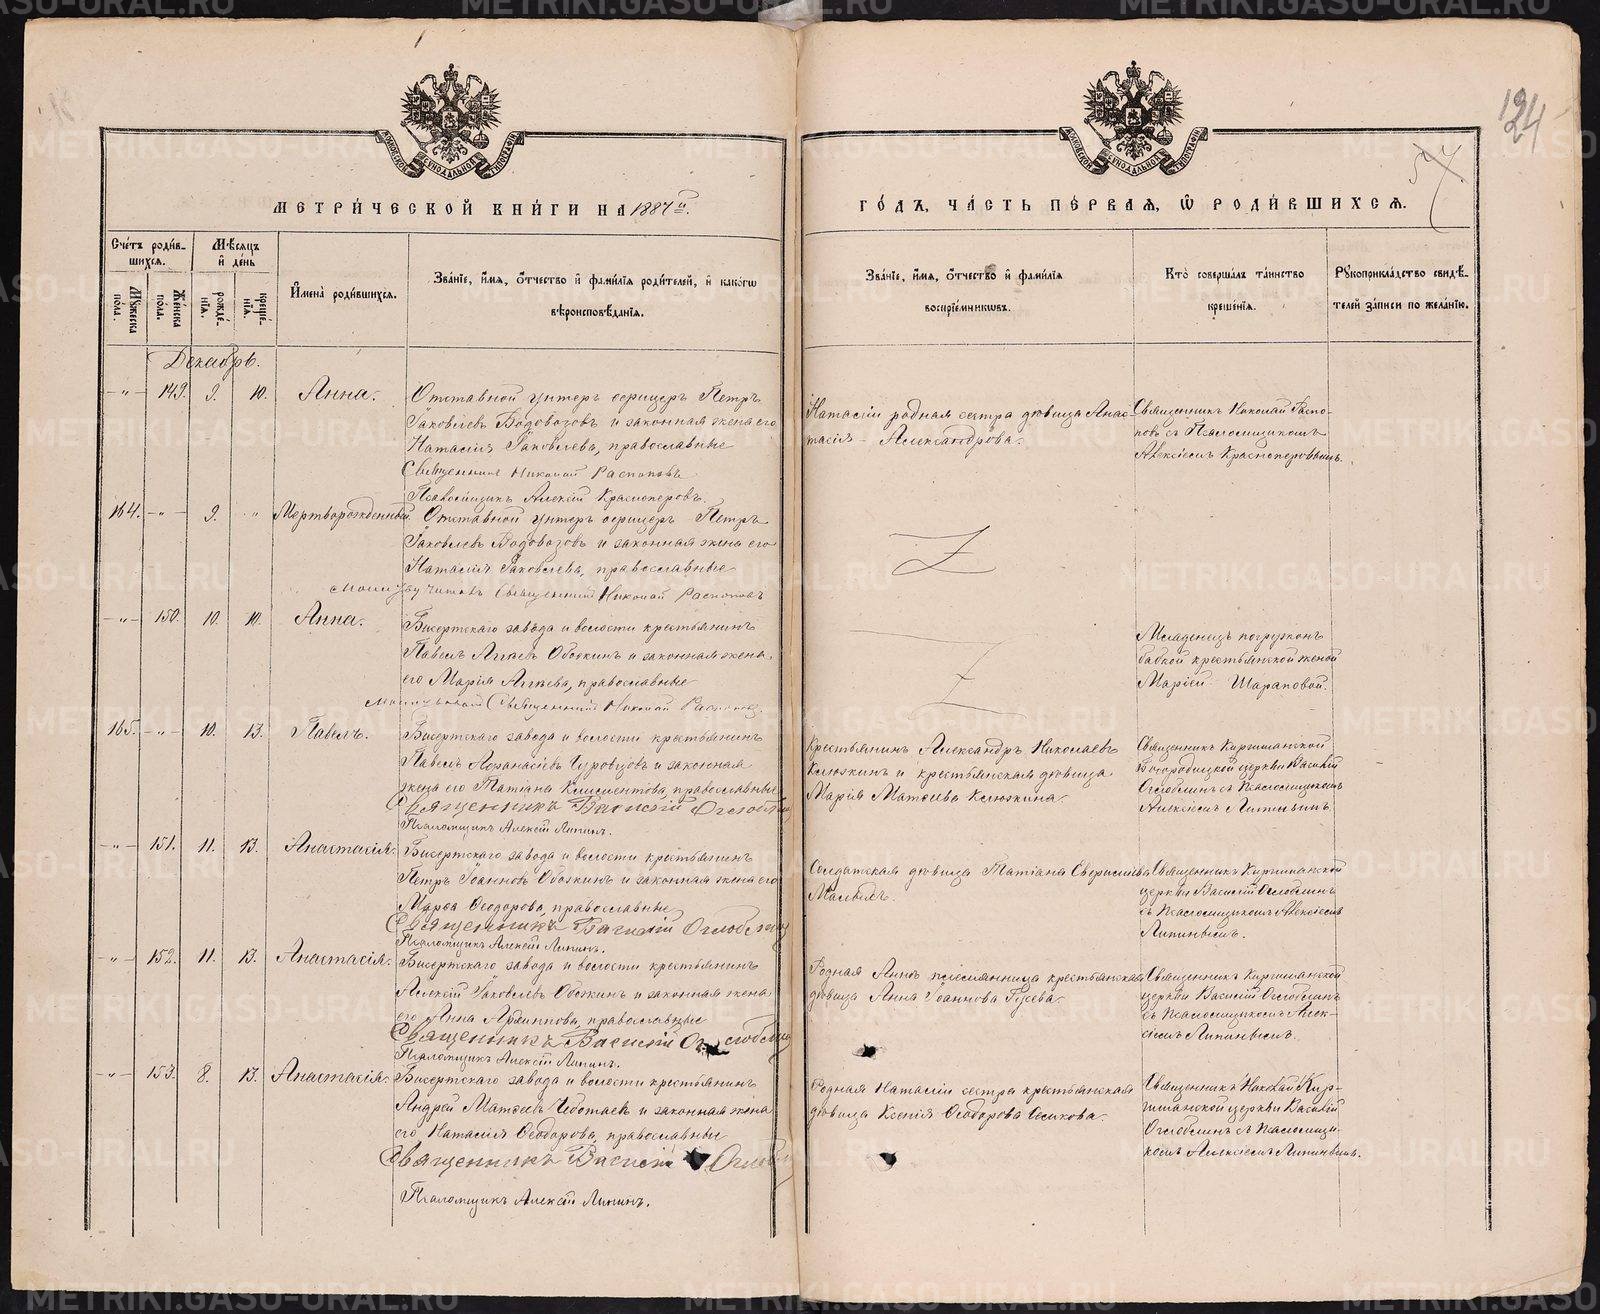 124
57
МЕТРИ́ЧЕСКОЙ КНИ́ГИ НА 1887й.
ГО́ДЪ, ЧА́СТЬ ПЕ́РВАЯ, Ѡ҆ РОДИ́ВШИХСЯ.
Сче́тъ роди́в-
шихся.
Мѣ́сяцъ
и҆ де́нь
Му́жеска по́ла.
Же́нска по́ла.
рожде́-
нїя.
креще́-
нїя.
И҆мена̀ роди́вшихся.
Зва́нїе, и҆́мя, ѻ҆́тчество и҆ фами́лїя роди́телей, и҆ како́гѡ
вѣроисповѣ́данїя.
Зва́нїе, и҆́мя, ѻ҆́тчество и҆ фами́лїя
воспрїе́мникѡвъ.
Кто̀ соверша́лъ та́инство
креще́нїя.
Рукоприкла́дство свидѣ́-
телей за́писи по жела́нїю.
Декабрь.
-"- 149. 9. 10. Анна.
Отставной унтеръ офицеръ Петръ
Іаковлевъ Водовозовъ и законная жена его
Наталія Іаковлева, православные
Священникъ Николай Распоповъ
Псаломщикъ Алексій Красноперовъ.
Наталіи родная сестра дѣвица Анас-
тасія Александрова.
Священникъ Николай Распо-
повъ съ Псаломщикомъ
Алексіемъ Красноперовымъ.
164. -"- 9. " Мертворожденный.
Отставной унтеръ офицеръ Петръ
Іаковлевъ Водовозовъ и законная жена его
Наталія Іаковлева, православные
молитву читалъ Священникъ Николай Распоповъ
-"- 150. 10. 10. Анна.
Бисертскаго завода и волости крестьянинъ
Павелъ Обожинъ и законная жена
его Марія православные
Священникъ Николай
Младенецъ погруженъ
бабкой крестьянской женой
Маріей Шараповой.
165. -"- 10. 13. Павелъ.
Бисертскаго завода и волости крестьянинъ
Павелъ Аѳанасіевъ и законная
жена его Татіана Климентова, православные
Священникъ Василій Оглоблинъ
Псаломщикъ Алексій Липинъ.
Крестьянинъ Александръ Николаевъ
Клюкинъ и крестьянская дѣвица
Марія Матѳіева Клюкина.
Священникъ Киргишанской
Богородицкой церкви Василій
Оглоблинъ съ Псаломщикомъ
Алексіемъ Липинымъ.
-"- 151. 11. 13. Анастасія.
Бисертскаго завода и волости крестьянинъ
Петръ Іоанновъ Обожинъ и законная жена его
Марѳа Ѳеодорова, православные
Священникъ Василій Оглоблинъ
Псаломщикъ Алексій Липинъ.
Солдатская дѣвица Татіана
Священникъ Киргишанской
церкви Василій Оглоблинъ
съ Псаломщикомъ Алексіемъ
Липинымъ.
-"- 152. 11. 13. Анастасія.
Бисертскаго завода и волости крестьянинъ
Алексій Іаковлевъ Обожинъ и законная жена
его Анна Архиппова, православные
Священникъ Василій Оглоблинъ
Псаломщикъ Алексій Липинъ.
Родная Аннѣ племянница крестьянская
дѣвица Анна Іоаннова Гусева.
Священникъ Киргишанской
церкви Василій Оглоблинъ
съ Псаломщикомъ Алек-
сіемъ Липинымъ.
-"- 153. 8. 13. Анастасія.
Бисертскаго завода и волости крестьянинъ
Андрей Матѳіевъ Чеботаевъ и законная жена
его Наталія Ѳеодорова, православные
Священникъ Василій Оглоблинъ
Псаломщикъ Алексій Липинъ.
Родная Наталіи сестра крестьянская
дѣвица Ксенія Ѳеодорова
Священникъ Кир-
гишанской церкви Василій
Оглоблинъ съ Псаломщи-
комъ Алексіемъ Липинымъ.
METRIKI.GASO-URAL.RU